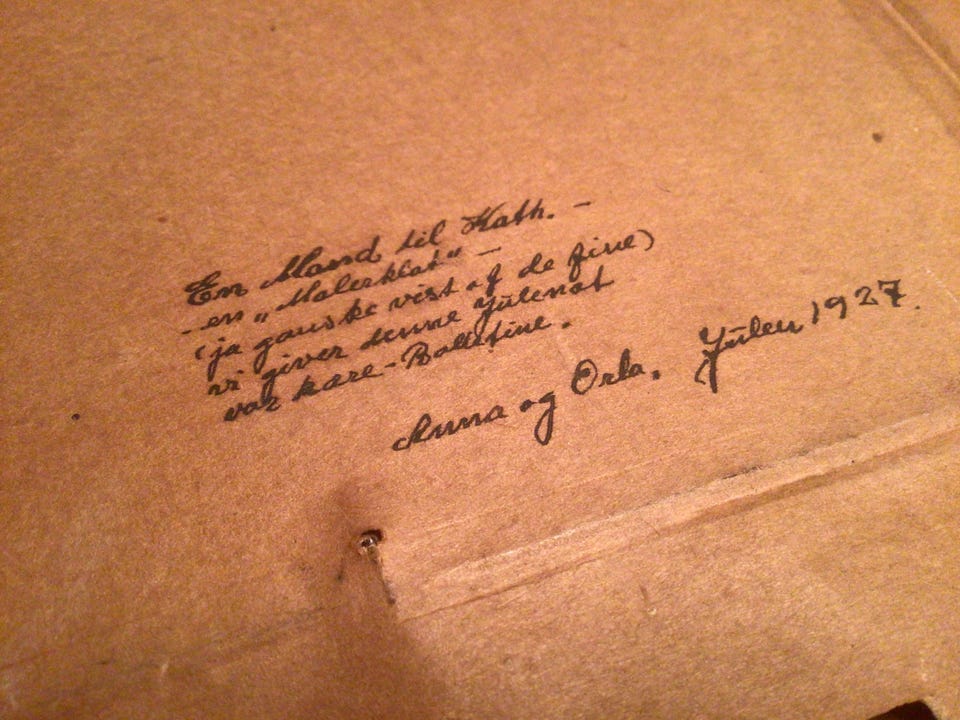 En Mand til Kath. –
– en „Malerklat“ –
(ja ganske vist af de fine)
vi giver denne Julenat
vor kære
Anna og Orla. Julen 1927.